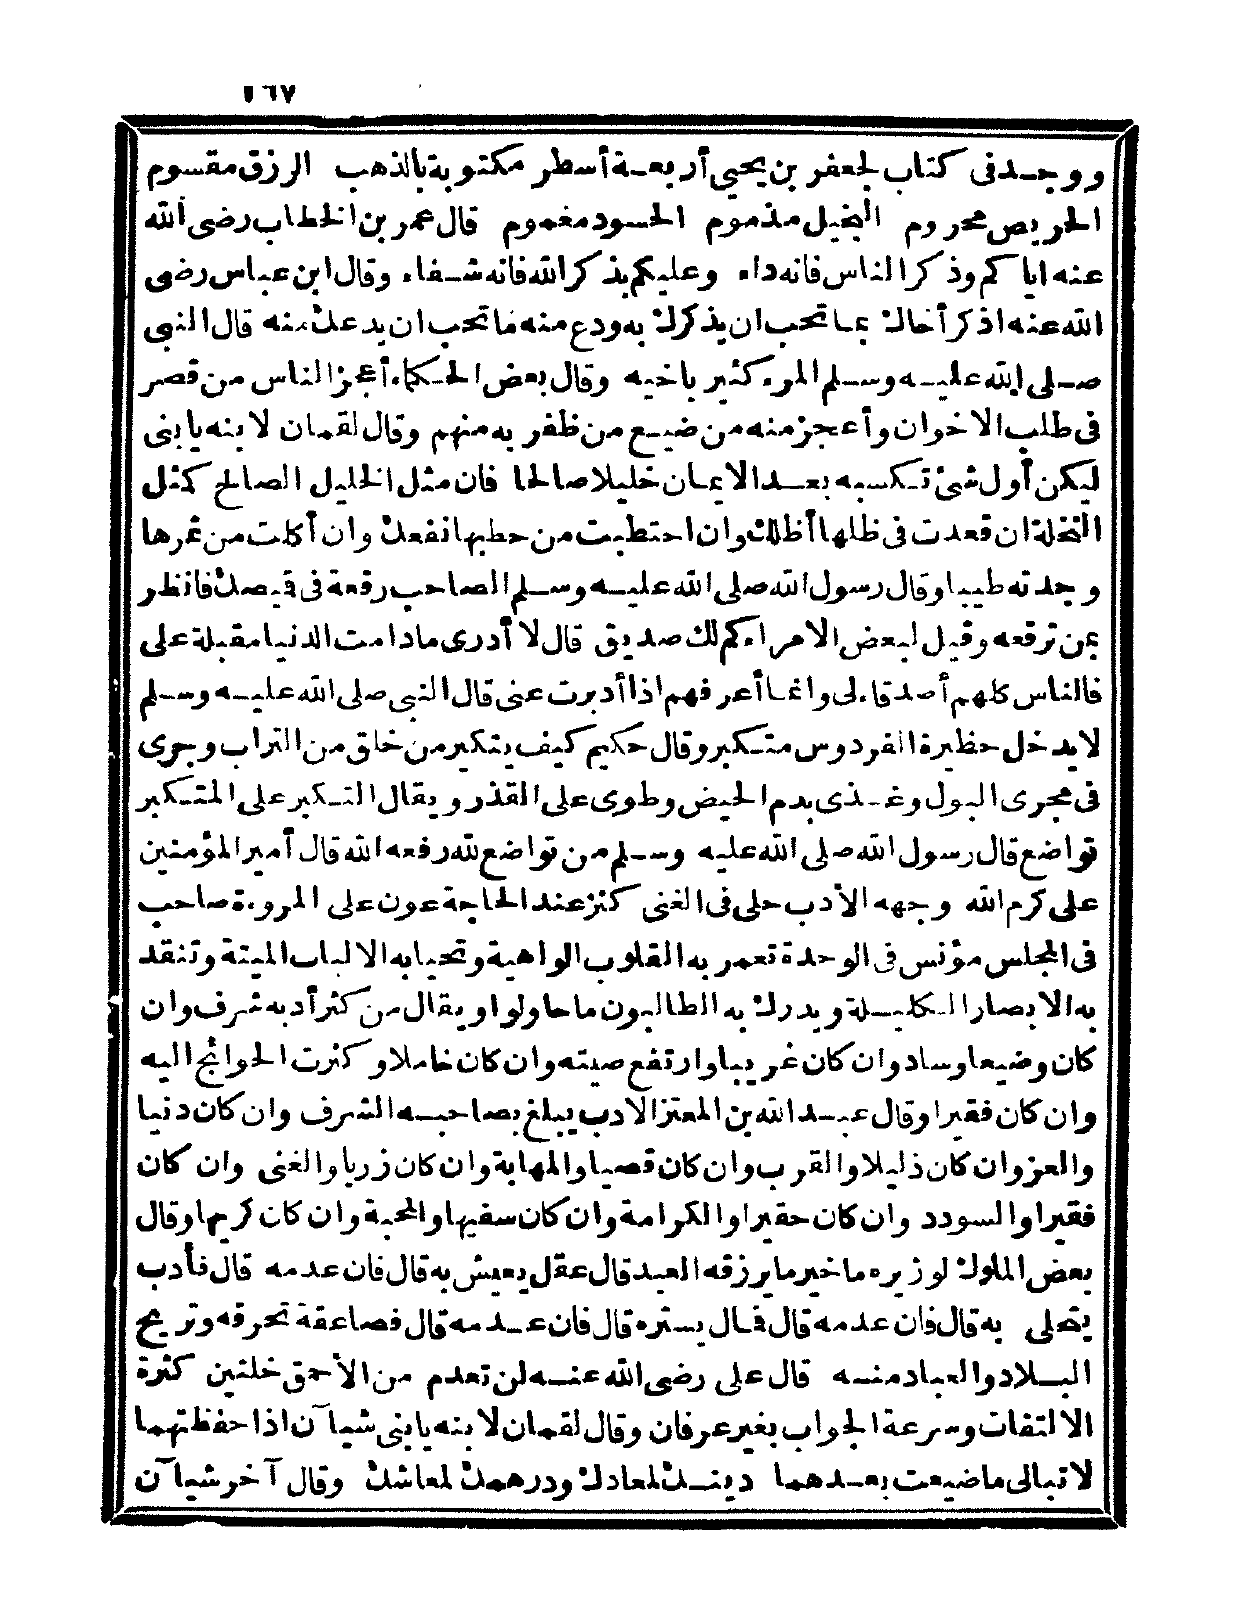 ١٦٧
ووجد فى كتاب لجعفر بن يحيى أربعة أسطر مكتوبة بالذهب الرزق مقسوم
الحريص محروم البخيل مذموم الحسود مغموم قال عمر بن الخطاب رضى الله
عنه اياكم وذكر الناس فانه داء وعليكم بذكر الله فانه شفاء وقال ابن عباس رضى
الله عنه اذكر أخاك بما تحب ان يذكرك به ودع منه ما تحب ان يدعك منه قال النبى
صلى الله عليه وسلم المرء كثير باخيه وقال بعض الحكماء أعجز الناس من قصر
فى طلب الاخوان وأعجز منه من ضيع من ظفر به منهم وقال لقمان لابنه يا بنى
ليكن أول شئ تكسبه بعد الايمان خليلا صالحا فان مثل الخليل الصالح كمثل
النخلة ان قعدت فى ظلها أظلك وان احتطبت من حطبها نفعك وان أكلت من ثمرها
وجدته طيبا وقال رسول الله صلى الله عليه وسلم الصاحب رقعة فى قميصك فانظر
بمن ترقعه وقيل لبعض الامراء كم لك صديق قال لا أدرى ما دامت الدنيا مقبلة على
فالناس كلهم أصدقاء لى وانما أعرفهم اذا أدبرت عنى قال النبى صلى الله عليه وسلم
لا يدخل حظيرة الفردوس متكبر وقال حكيم كيف يتكبر من خلق من التراب وجرى
فى مجرى البول وغذى بدم الحيض وطوى على القذر ويقال التكبر على المتكبر
تواضع قال رسول الله صلى الله عليه وسلم من تواضع لله رفعه الله قال أمير المؤمنين
على كرم الله وجهه الأدب حلى فى الغنى كنز عند الحاجة عون على المروءة صاحب
فى المجلس مؤنس فى الوحدة تعمر به القلوب الواهية وتحيا به الالباب الميتة وتنقد
به الابصار الكليلة ويدرك به الطالبون ما حاولوا ويقال من كثر أدبه شرف وان
كان وضيعا وساد وان كان غريبا وارتفع صيته وان كان خاملا وكثرت الحوائج اليه
وان كان فقيرا وقال عبد الله بن المعتز الادب يبلغ بصاحبه الشرف وان كان دنيا
والعز وان كان ذليلا والقرب وان كان قصيا والمهابة وان كان زريا والغنى وان كان
فقيرا والسودد وان كان حقيرا والكرامة وان كان سفيها والمحبة وان كان كريها وقال
بعض الملوك لوزيره ما خير ما يرزقه العبد قال عقل يعيش به قال فان عدمه قال فأدب
يتحلى به قال فان عدمه قال فمال يستره قال فان عدمه قال فصاعقة تحرقه وتريح
البلاد والعباد منه قال على رضى الله عنه لن تعدم من الأحمق خلتين كثرة
الالتفات وسرعة الجواب بغير عرفان وقال لقمان لابنه يا بنى شيآن اذا حفظتهما
لا تبالى ما ضيعت بعدهما دينك لمعادك ودرهمك لمعاشك وقال آخر شيآن